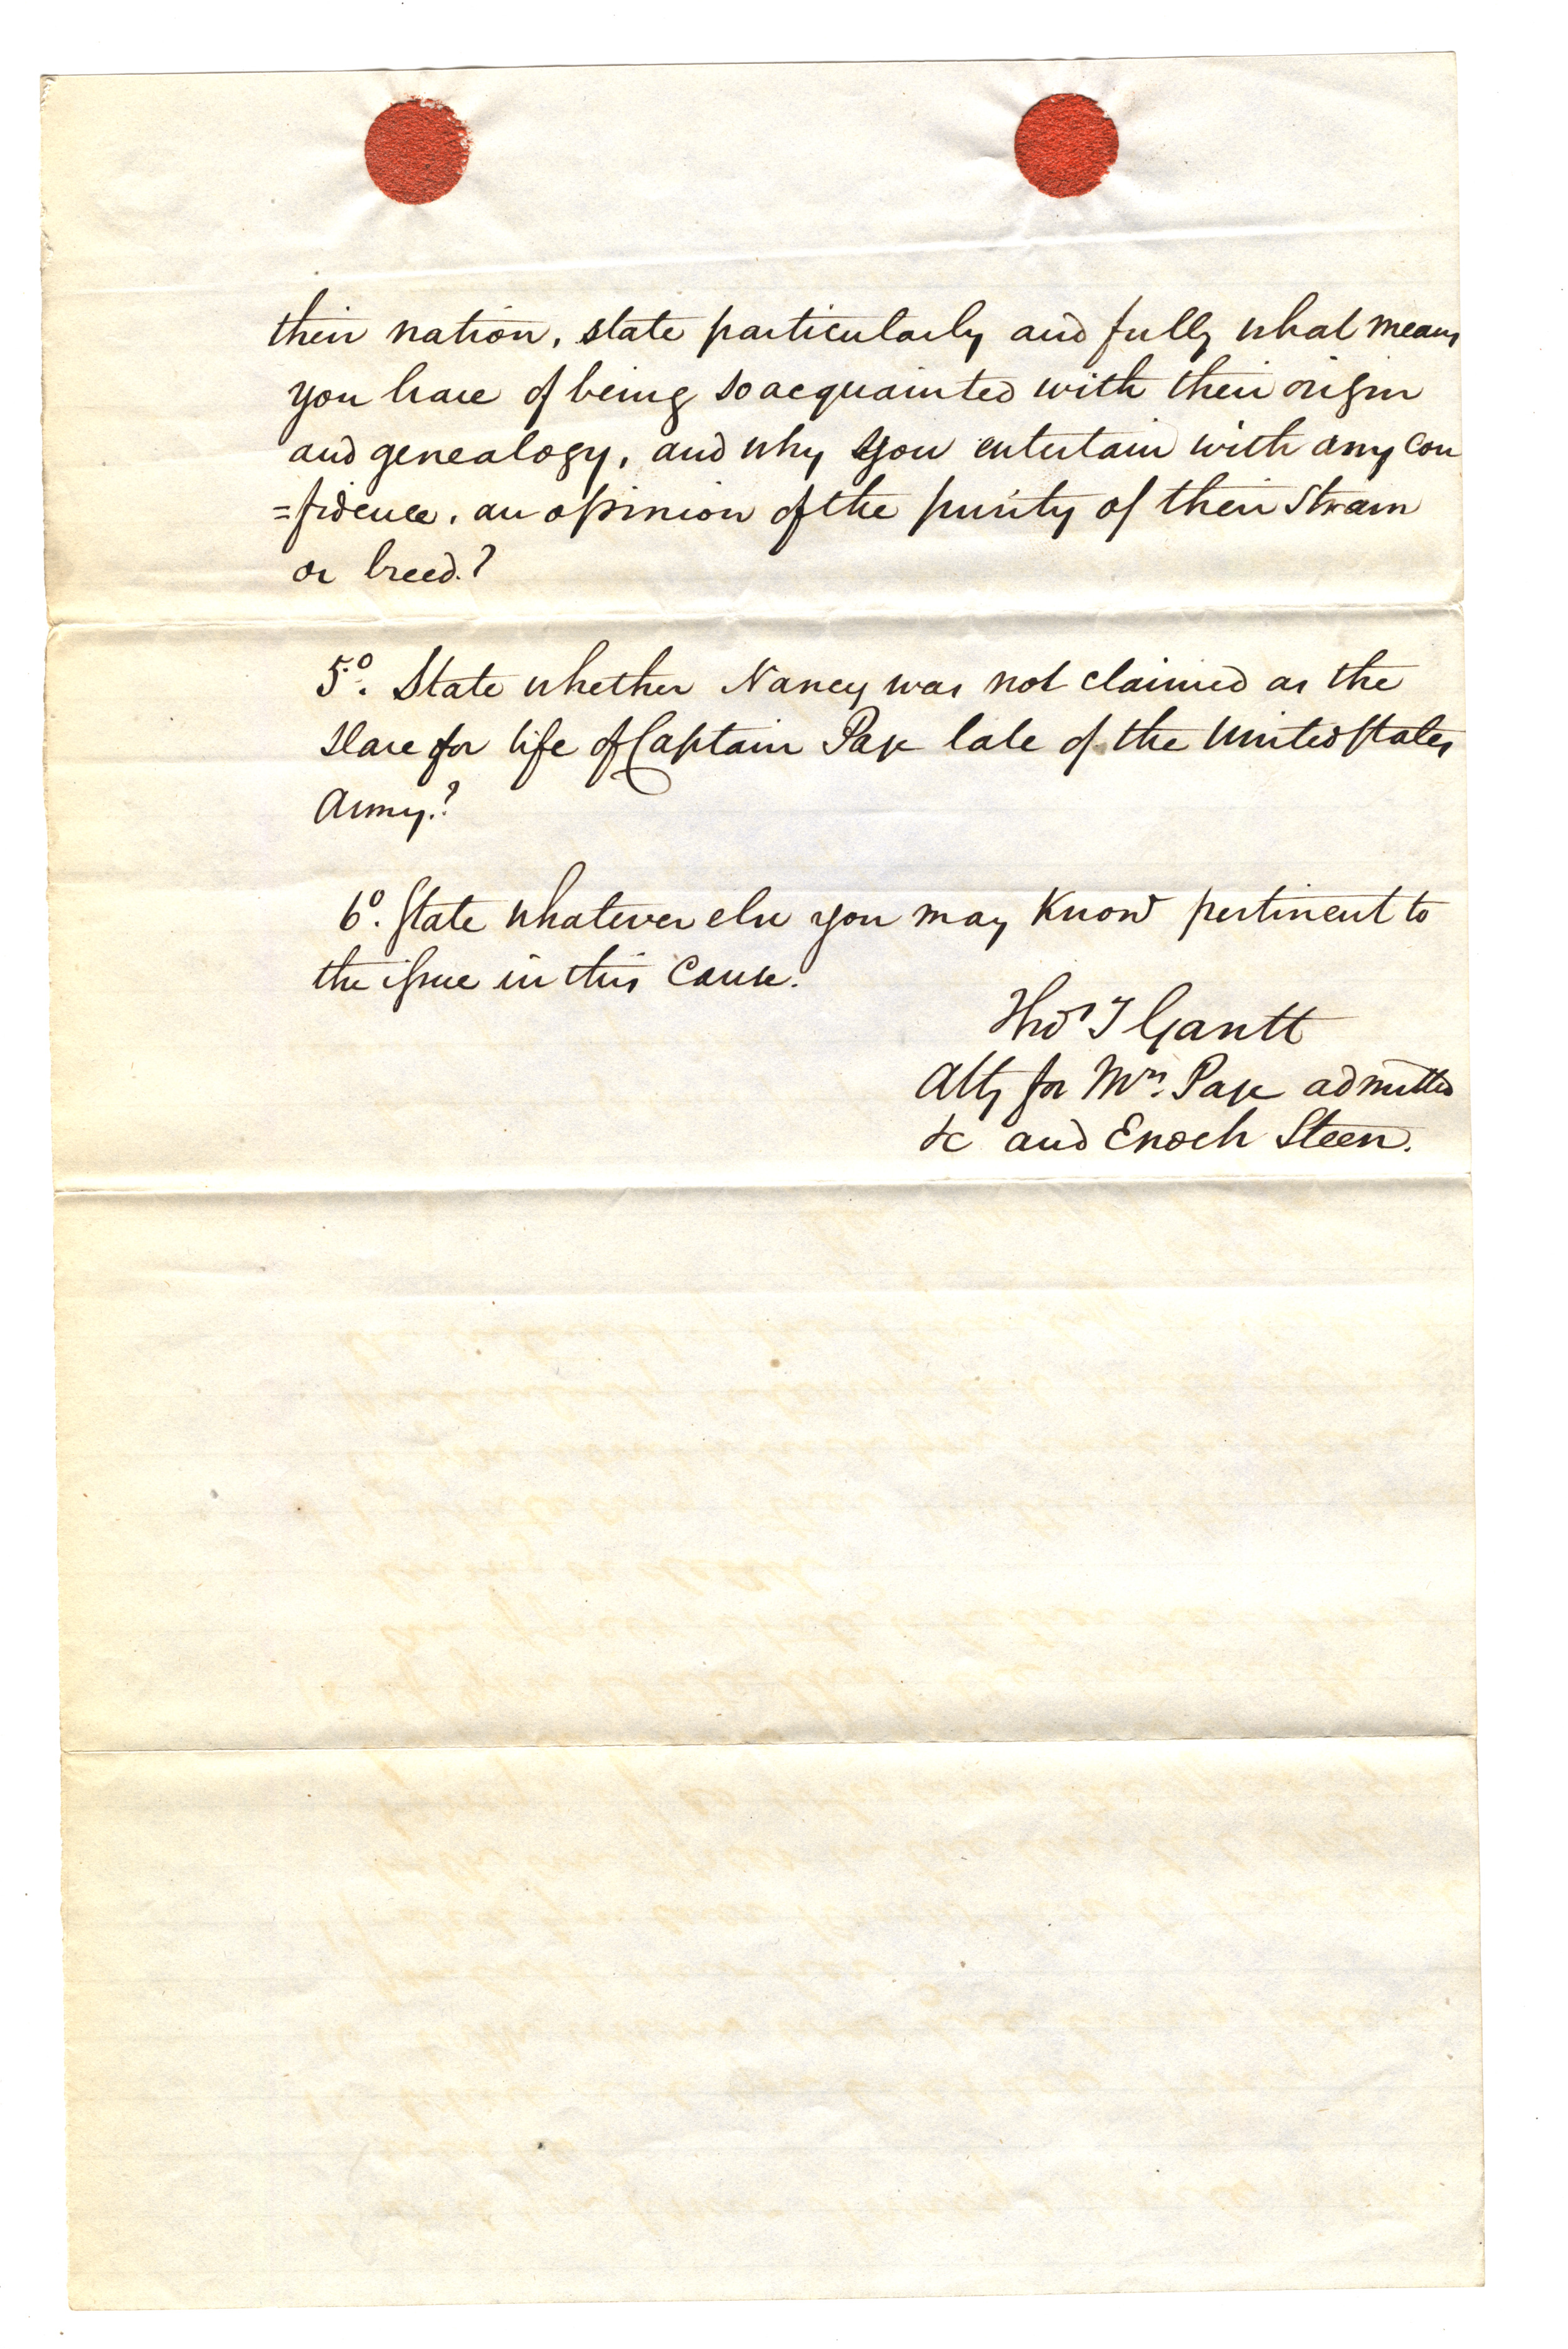 their nation, state particularly and fully what means
you have of being so acquainted with their origin
and genealogy, and why you entertain with any con
=fidence, an opinion of the purity of their strain
or breed.?
5º. State whether Nancy was not claimed as the
slave for life of Captain Page late of the United States
Army.?
6º. State whatever else you may know pertinent to
the issue in this cause.
Thos T Gantt
Atty for Mrs. Page admitted
&c and Enoch Steen.